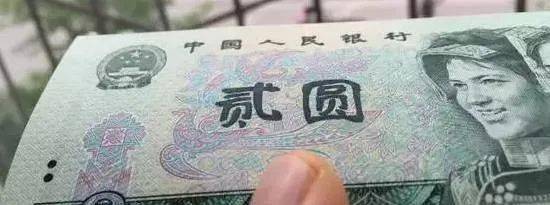 中国人民银行
贰圆